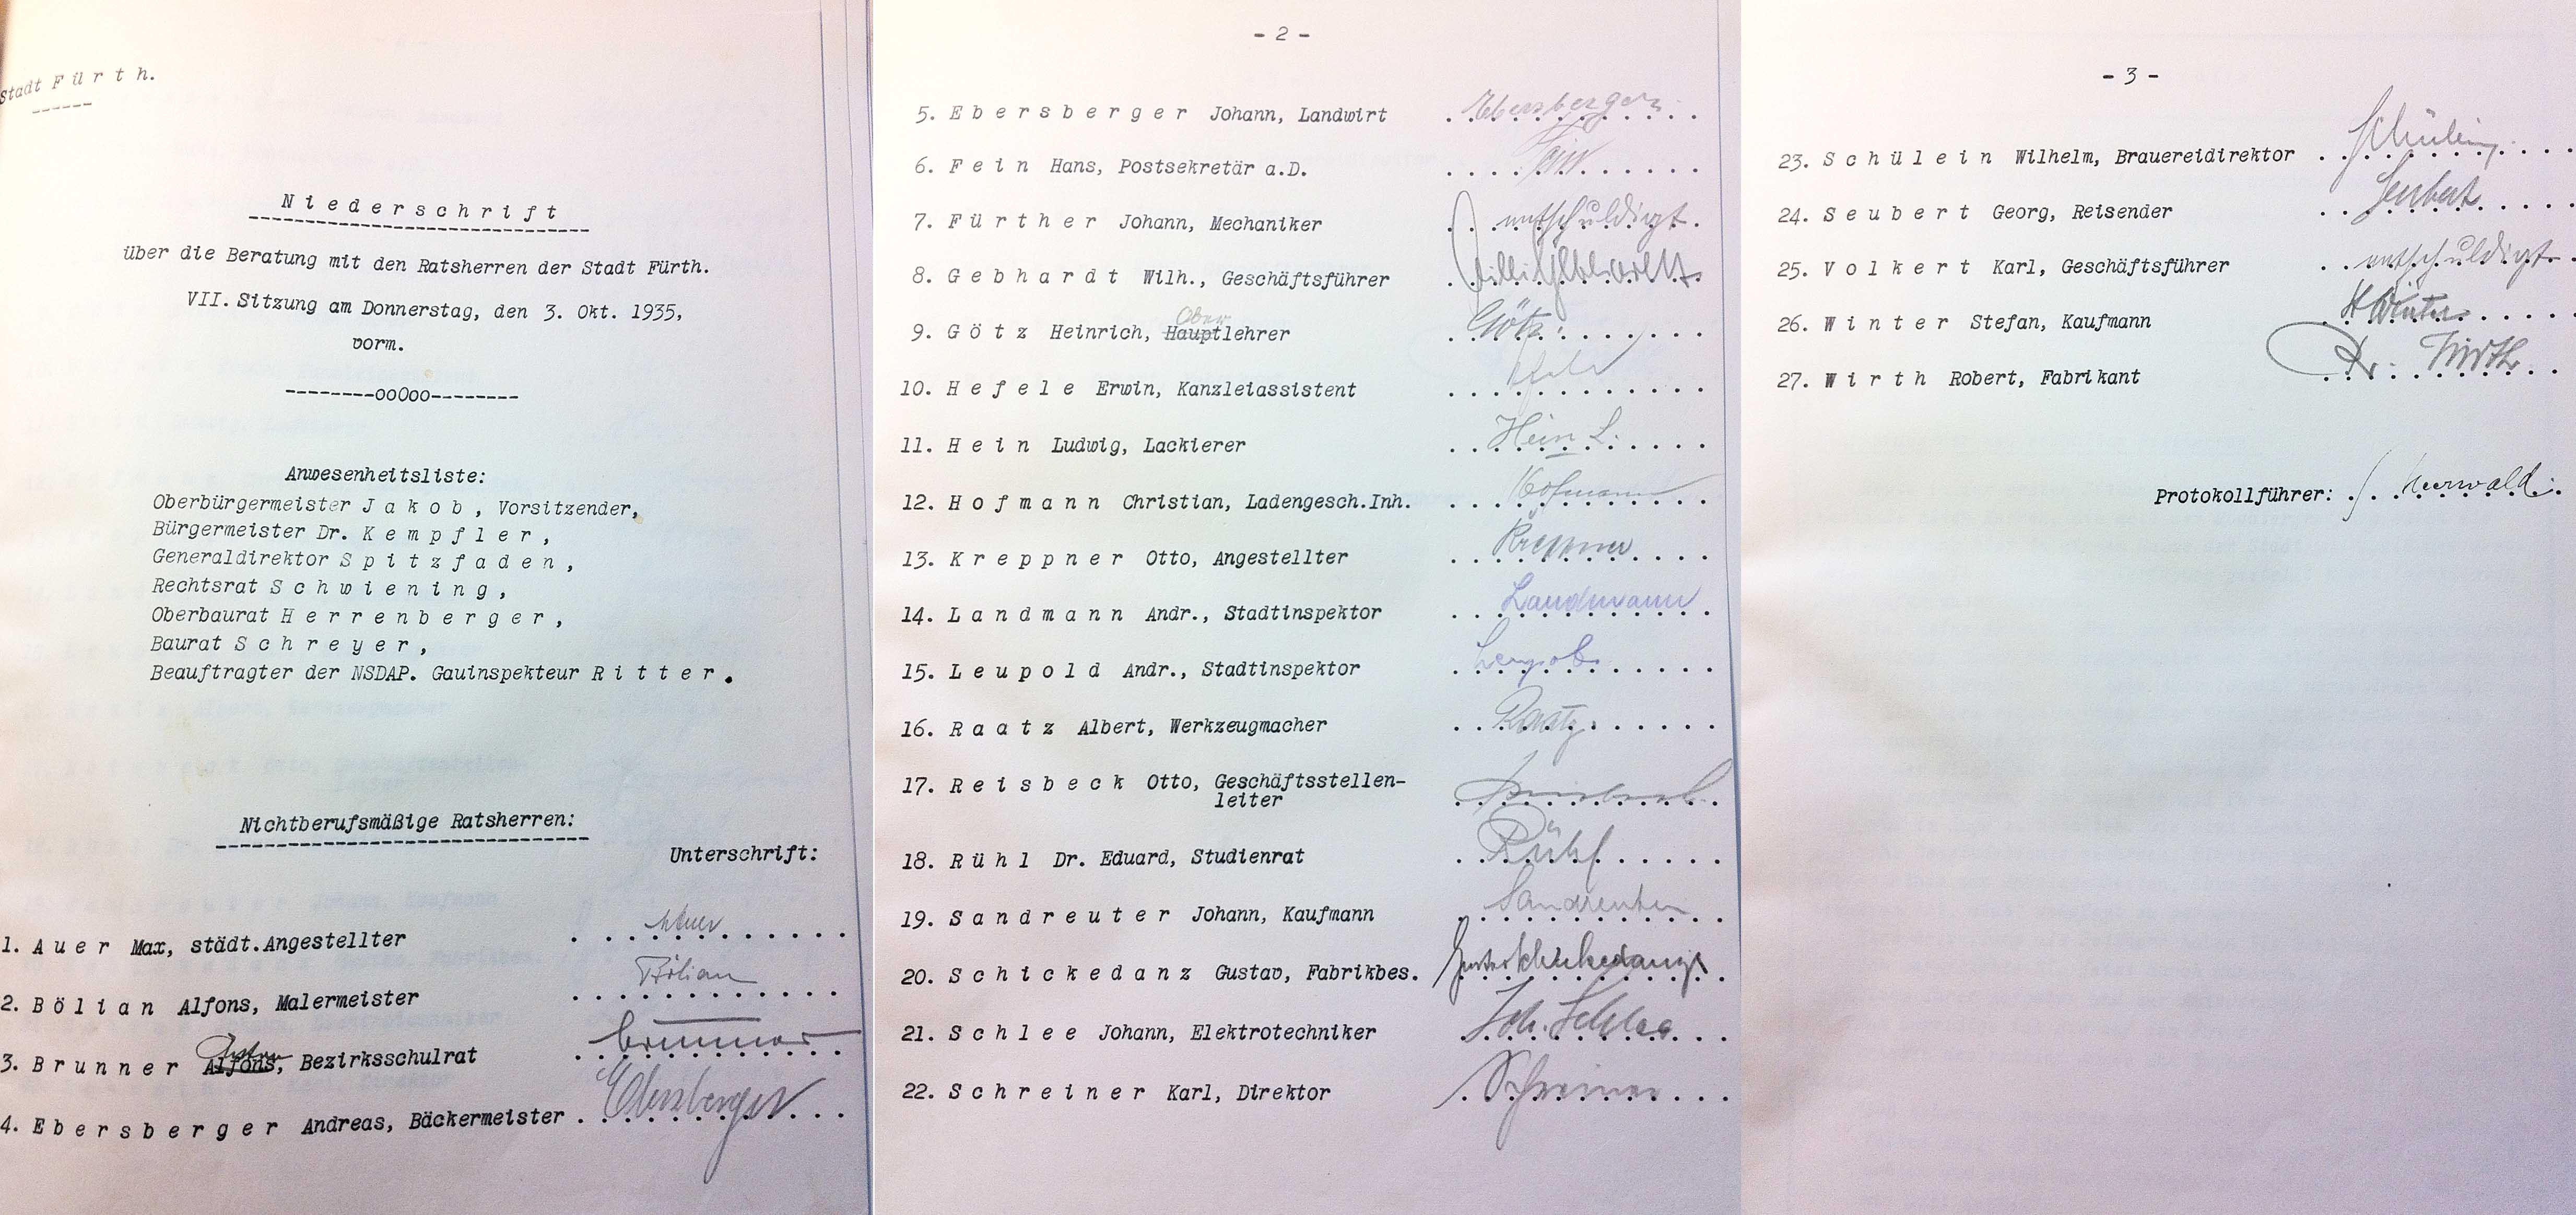 Stadt F ü r t h.
N i e d e r s c h r i f t
über die Beratung mit den Ratsherren der Stadt Fürth.
VII. Sitzung am Donnerstag, den 3. Okt. 1935,
vorm.
--------ooOoo--------
Anwesenheitsliste:
Oberbürgermeister J a k o b , Vorsitzender,
Bürgermeister Dr. K e m p f l e r ,
Generaldirektor S p i t z f a d e n ,
Rechtsrat S c h w i e n i n g ,
Oberbaurat H e r r e n b e r g e r ,
Baurat S c h r e y e r ,
Beauftragter der NSDAP. Gauinspekteur R i t t e r .
Nichtberufsmäßige Ratsherren:
Unterschrift:
1. A u e r Max, städt.Angestellter Auer
2. B ö l i a n Alfons, Malermeister Bölian
3. B r u n n e r Alfons, Bezirksschulrat Brunner
4. E b e r s b e r g e r Andreas, Bäckermeister Ebersberger
- 2 -
5. E b e r s b e r g e r Johann, Landwirt Ebersberger
6. F e i n Hans, Postsekretär a.D. Fein
7. F ü r t h e r Johann, Mechaniker entschuldigt.
8. G e b h a r d t Wilh., Geschäftsführer Willi Gebhardt
Ober
9. G ö t z Heinrich, Hauptlehrer Götz
10. H e f e l e Erwin, Kanzleiassistent
11. H e i n Ludwig, Lackierer Hein L.
12. H o f m a n n Christian, Ladengesch.Inh. Hofmann
13. K r e p p n e r Otto, Angestellter Kreppner
14. L a n d m a n n Andr., Stadtinspektor Landmann
15. L e u p o l d Andr., Stadtinspektor Leupold
16. R a a t z Albert, Werkzeugmacher Raatz
17. R e i s b e c k Otto, Geschäftsstellen-
leiter
18. R ü h l Dr. Eduard, Studienrat Rühl
19. S a n d r e u t e r Johann, Kaufmann Sandreuter
20. S c h i c k e d a n z Gustav, Fabrikbes. Gustav Schickedanz
21. S c h l e e Johann, Elektrotechniker Joh. Schlee
22. S c h r e i n e r Karl, Direktor Schreiner
- 3 -
23. S c h ü l e i n Wilhelm, Brauereidirektor Schülein
24. S e u b e r t Georg, Reisender Seubert
25. V o l k e r t Karl, Geschäftsführer entschuldigt
26. W i n t e r Stefan, Kaufmann Winter
27. W i r t h Robert, Fabrikant Wirth
Protokollführer: Meerwald